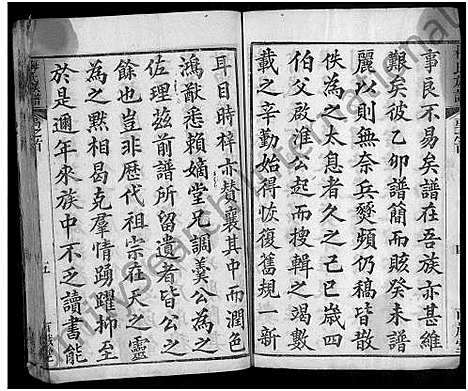 事良不易矣譜在吾族亦甚維
艱矣彼乙卯譜簡而賅癸未譜
麗以則無奈兵燹頻仍稿皆散
佚為之太息者久之己巳歳四
伯父啟淮公起而搜輯之竭數
載之辛勤始得恢復舊規一新
耳目時梓亦賛襄其中而潤色
鴻猷悉賴嫡堂兄調羹公為之
佐理茲前譜所留遺者皆公之
餘也豈非歴代祖宗在天之靈
為之黙相曷克羣情踴躍抑至
於是邇年來族中不乏讀書能
五